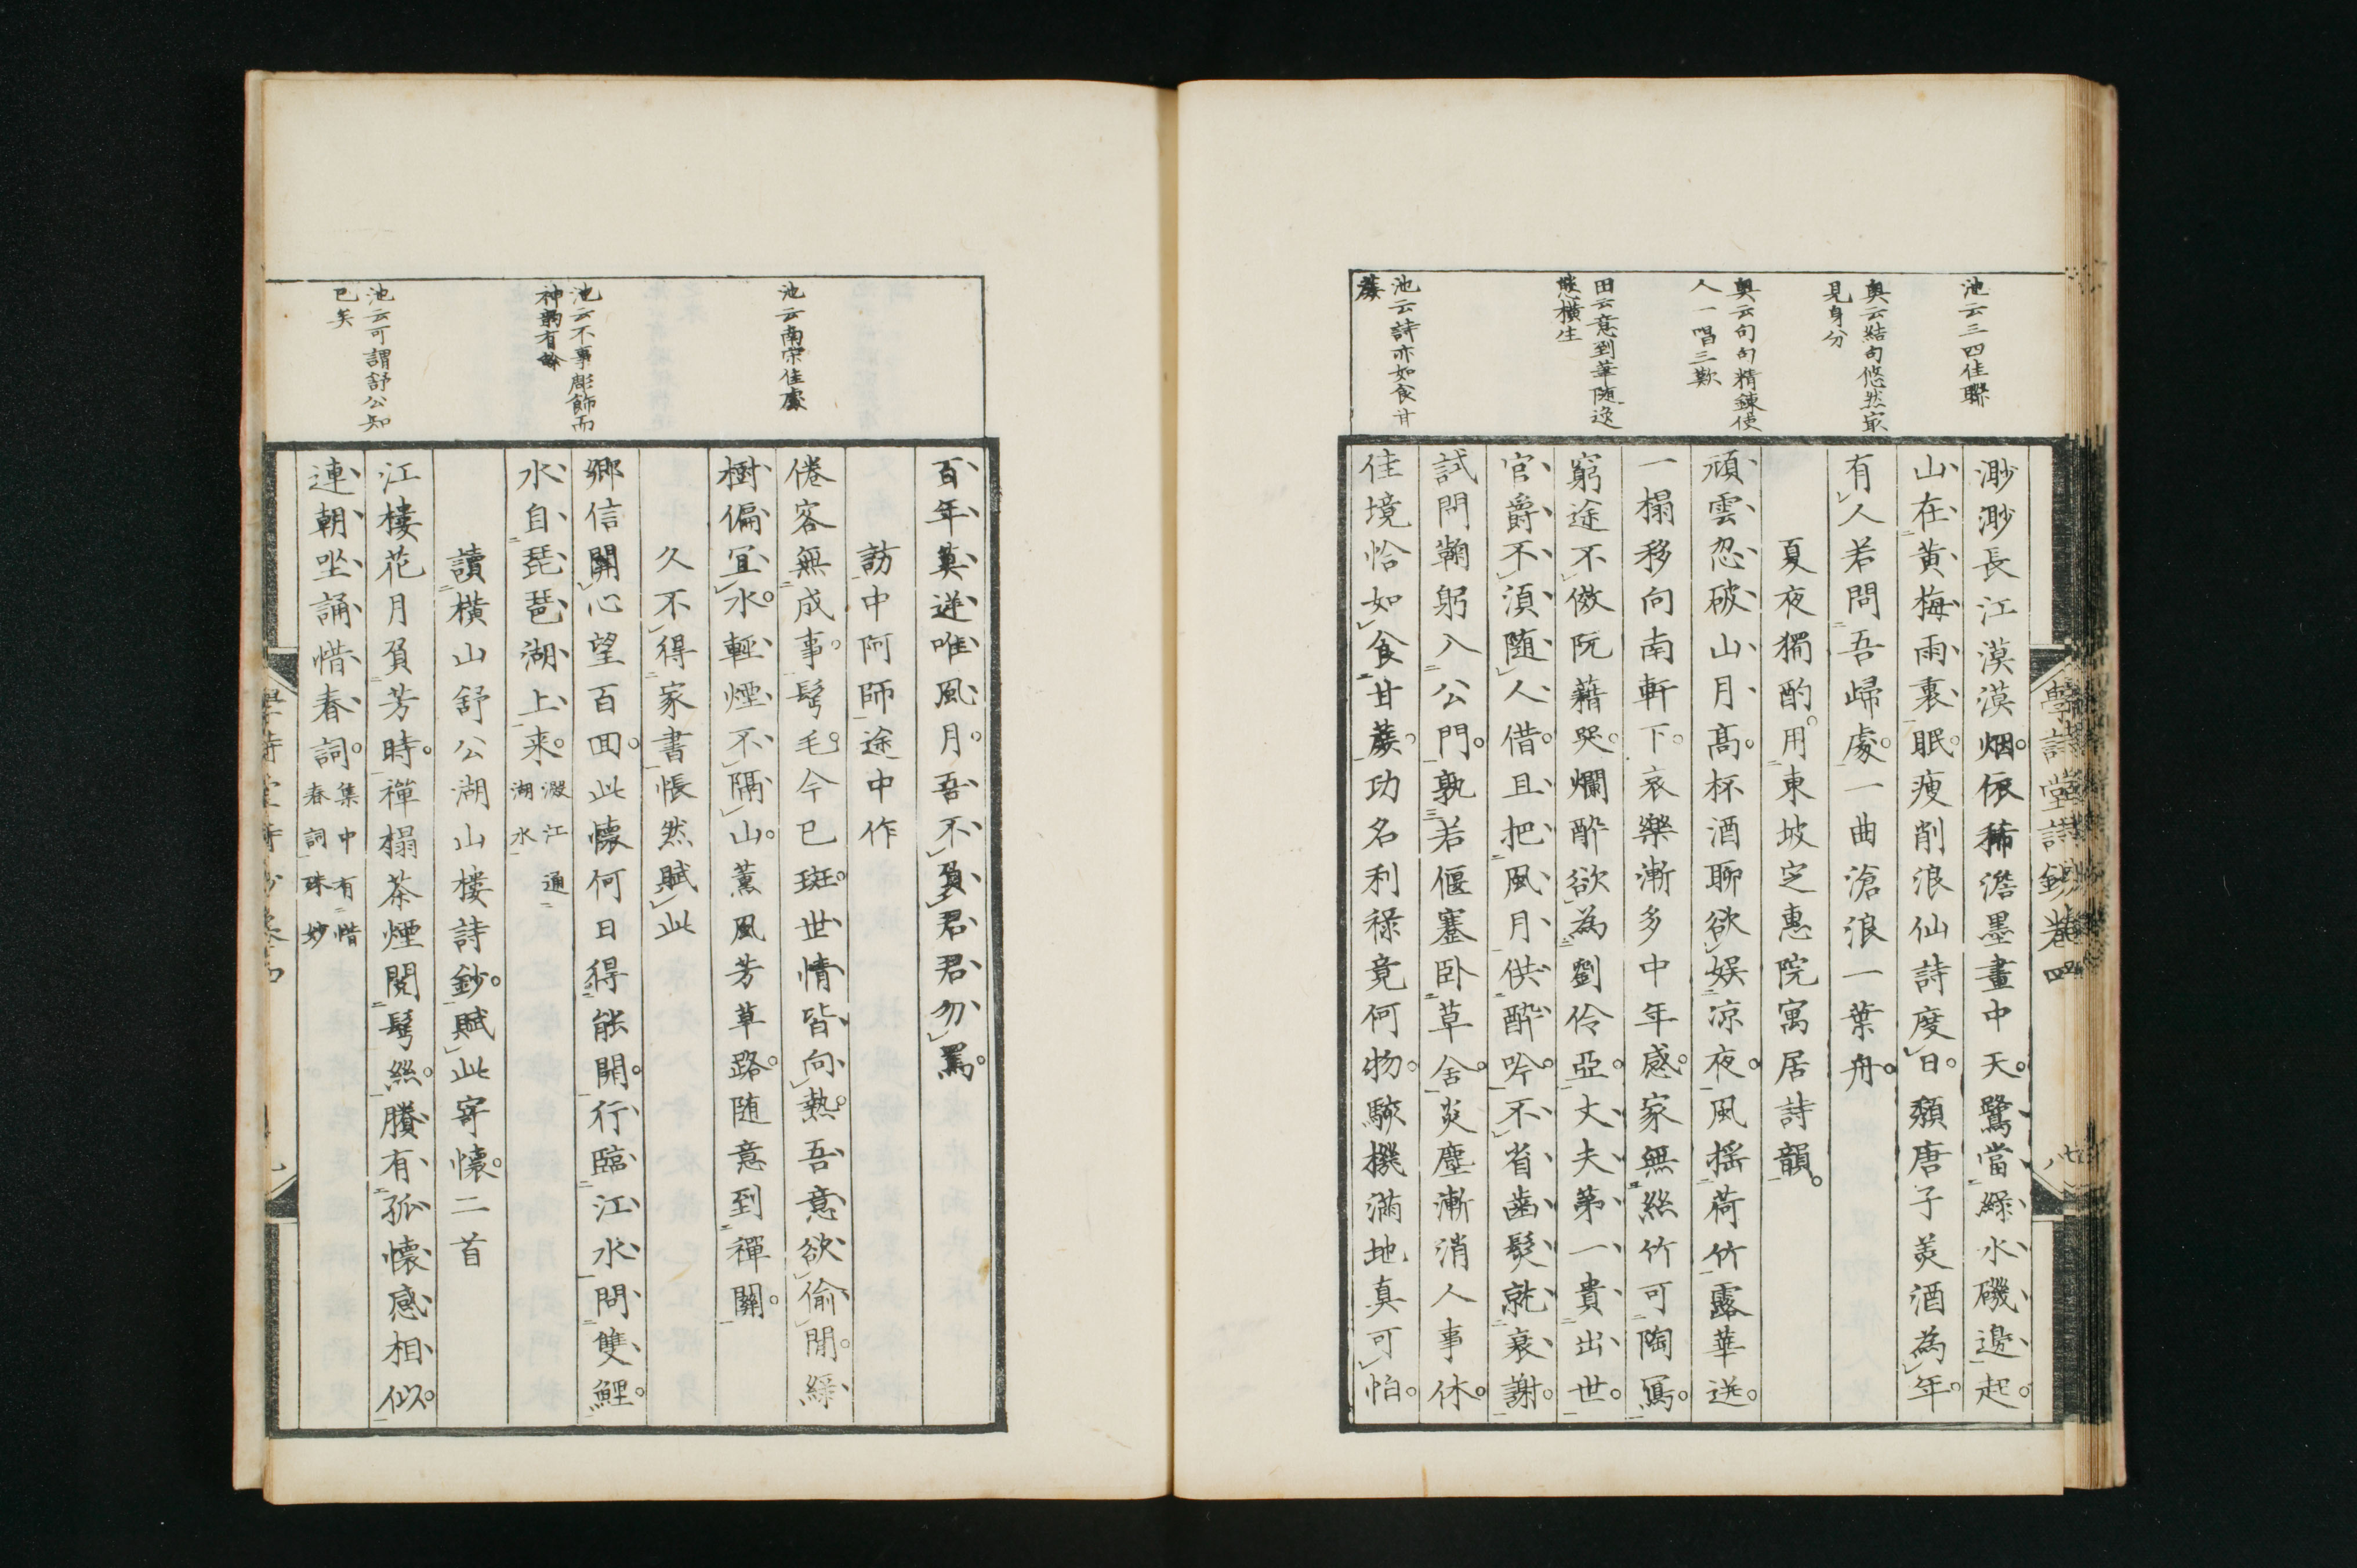 池云三四佳聯
奥云結句悠然寂
見身分
奥云句句精鍊使
人一唱三歎
田云意到華隨逸
態橫生
池云詩亦如食甘
蔗
學詩堂詩鈔卷四
渺渺長江漠漠烟依稀澹墨畫中天鷺當綠水磯邊起
山在黄梅雨裏眠瘦削浪仙詩度日頽唐子美酒為年
有人若問吾歸處一曲滄浪一葉舟
夏夜獨酌用東坡定惠院寓居詩韻
頑雲忍破山月高杯酒聊欲娯凉夜風揺荷竹露華送
一榻移向南軒下哀樂漸多中年感家無絲竹可陶寫
窮途不倣阮藉哭爛酔欲為劉伶亞丈夫第一貴出世
官爵不須随人借且把風月供酔吟不省歯髮就衰謝
試問鞠躬入公門孰若偃蹇卧草舍炎塵漸消人事休
佳境恰如食甘蔗功名利禄竟何物駭機滿地真可怕
池云南宗佳處
池云不事彫飾而
神韵有餘
池云可謂舒公知
已矣
百年莫逆唯風月吾不負君君勿罵
訪中阿師途中作
倦客無成事髩毛今已斑世情皆向熱吾意欲偷閒緑
樹偏宜水輕煙不隔山薫風芳草路随意到禪關
久不得家書悵然賦此
郷信開心望百回此懐何日得能開行臨江水問雙鯉
水自琵琶湖上来 澱江通
湖水
讀橫山舒公湖山樓詩鈔賦此寄懐二首
江樓花月負芳時禪榻茶煙閲髩絲賸有孤懐感相似
連朝坐誦惜春詞 集中有惜
春詞殊妙